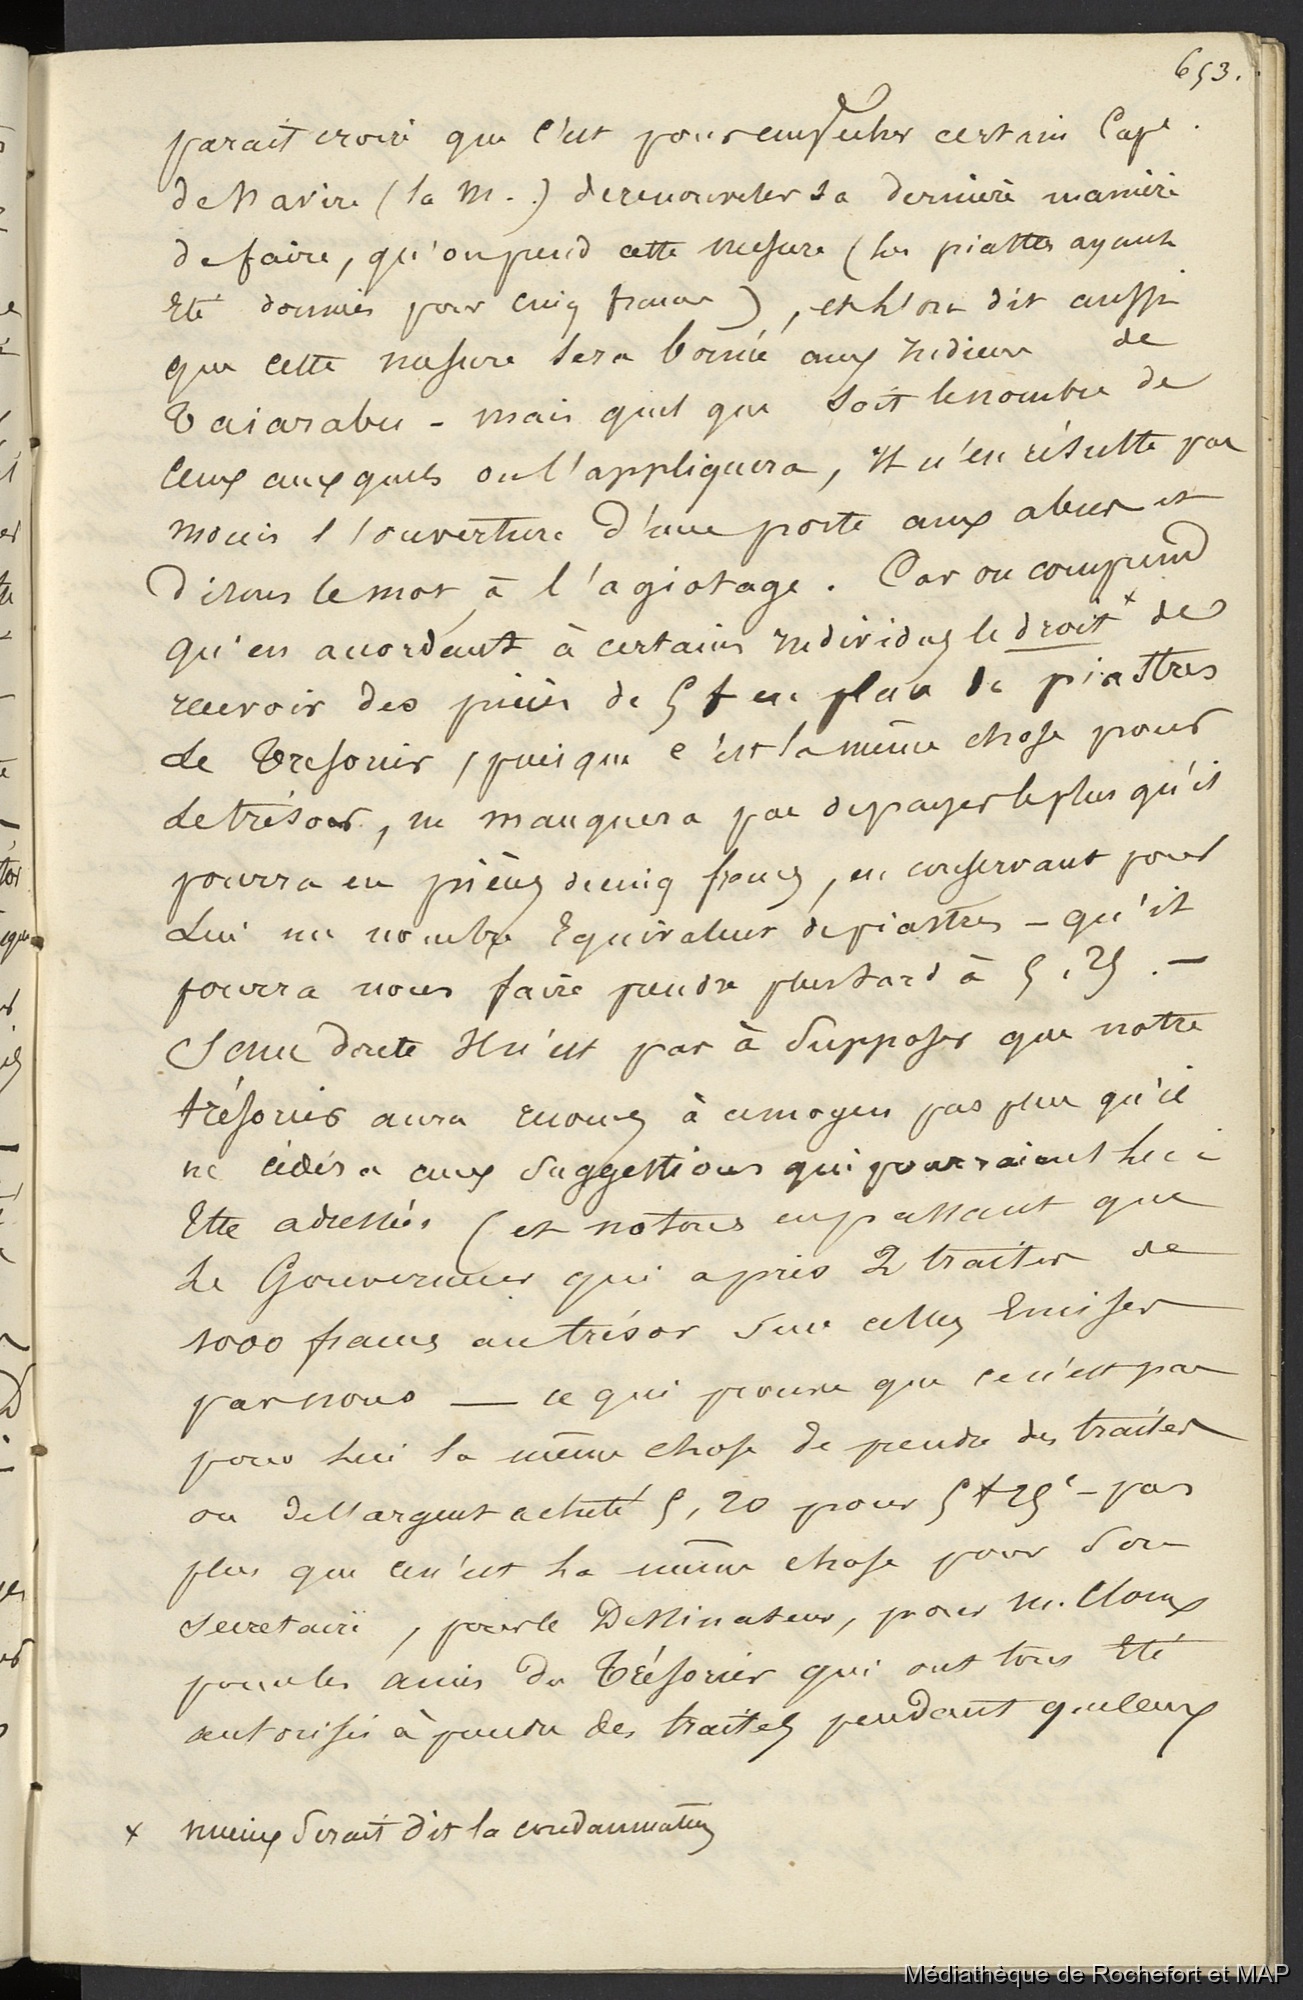 653.
parait croire que c'est pour empecher certain Cape.
de Navire (la M..) derenouveler sa derniere maniere
de faire, qu'on prend cette mesure (les piastres ayant
Eté donnees pour cinq francs), et l'on dit aussi
que cette mesure sera bornée aux Indiens de
Taiarabu - mais quel que soit lenombre de
Ceux auxquels on l'appliquera, Il n'en résulte pas
moins l'ouverture d'une porte aux abus et
disons le mot, à l'agiotage. Car on comprend
qu'en acordant à certains individus le droit x de
recevoir des pièces de 5 f en place de piastres
Le Tresorier, puisque c'est la même chose pour
Le trésor, ne manquera pas depayer leplus qu'il
pourra en pièces decinq francs, en conservant pour
Lui un nombre Equivalent depiastres - qu'il
pourra nous faire prendre plustard à 5,25. -
Sans doute Il n'est pas à Supposer que notre
trésorier aura recours à cemoyen pas plus qu'il
ne cédera aux Suggestions qui pourraient lui
Etre adressées (et notons enpassant que
Le Gouverneur qui a pris 2 traites de
1000 francs autrésor sur celles Emises
par nous — ce qui prouve que cen'est pas
pour lui la même chose de prendre des traites
ou del'argent acheté 5,20 pour 5 f 25c - pas
plus que cen'est la même chose pour Son
Secretaire, pourle Dessinateur, pour M. Cloux
pour les amis du Trésorier qui ont tous Eté
autorisés à prendre des traites pendant queceux
x mieux Serait dit la condamnation
Médiathèque de Rochefort et MAP